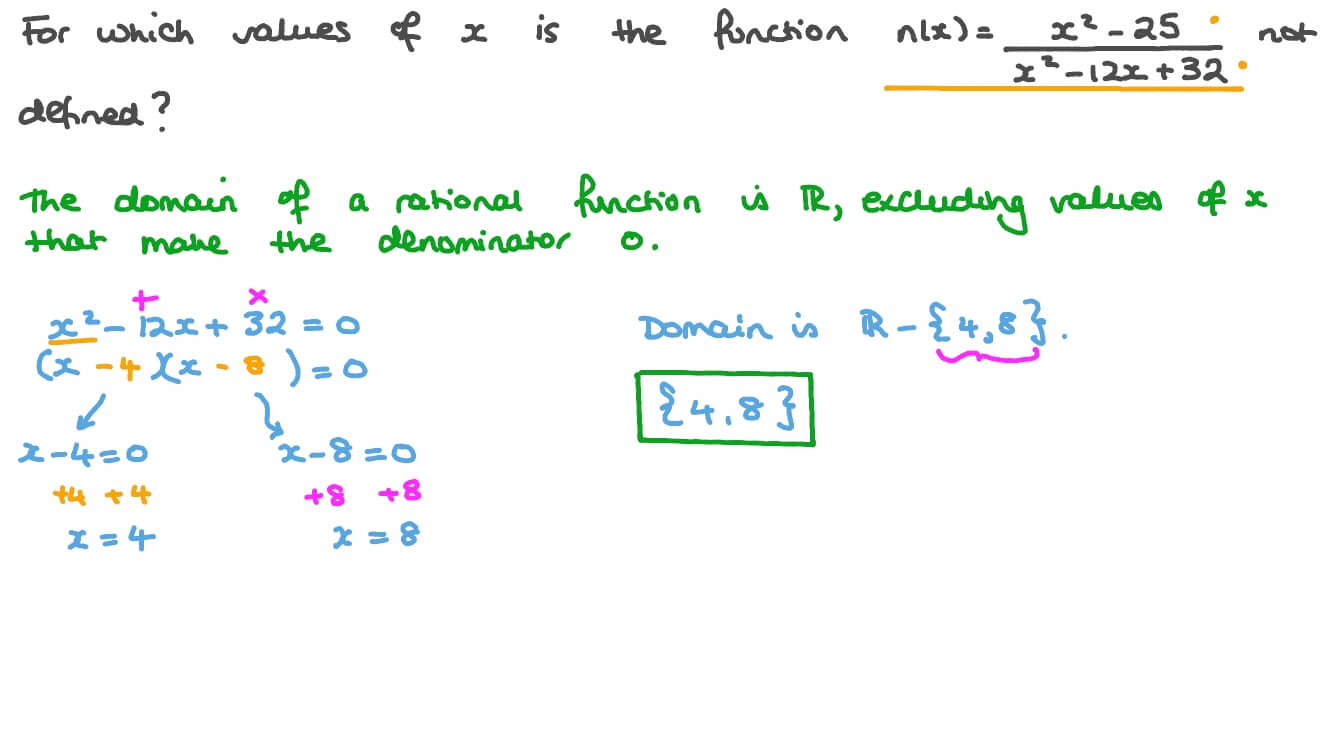 For which values of x is the function n(x) = (x² - 25)/(x² - 12x + 32) not
defined?
The domain of a rational function is ℝ, excluding values of x
that make the denominator 0.
+ ×
x² - 12x + 32 = 0
(x - 4)(x - 8) = 0
x - 4 = 0
+4 +4
x = 4
x - 8 = 0
+8 +8
x = 8
Domain is ℝ - {4,8}.
{4,8}